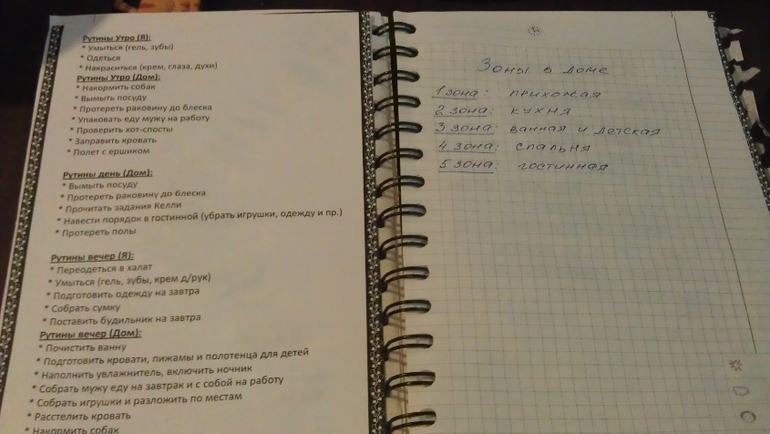 Рутины Утро (Я):
* Умыться (гель, зубы)
* Одеться
* Накраситься (крем, глаза, духи)
Рутины Утро (Дом):
* Накормить собак
* Вымыть посуду
* Протереть раковину до блеска
* Упаковать еду мужу на работу
* Проверить хот-споты
* Заправить кровать
* Полет с ершиком
Рутины день (Дом):
* Вымыть посуду
* Протереть раковину до блеска
* Прочитать задания Келли
* Навести порядок в гостинной (убрать игрушки, одежду и пр.)
* Протереть полы
Рутины вечер (Я):
* Переодеться в халат
* Умыться (гель, зубы, крем д/рук)
* Подготовить одежду на завтра
* Собрать сумку
* Поставить будильник на завтра
Рутины вечер (Дом):
* Почистить ванну
* Подготовить кровати, пижамы и полотенца для детей
* Наполнить увлажнитель, включить ночник
* Собрать мужу еду на завтрак и с собой на работу
* Собрать игрушки и разложить по местам
* Расстелить кровать
* Накормить собак
Зоны в доме
1 зона: прихожая
2 зона: кухня
3 зона: ванная и детская
4 зона: спальня
5 зона: гостинная